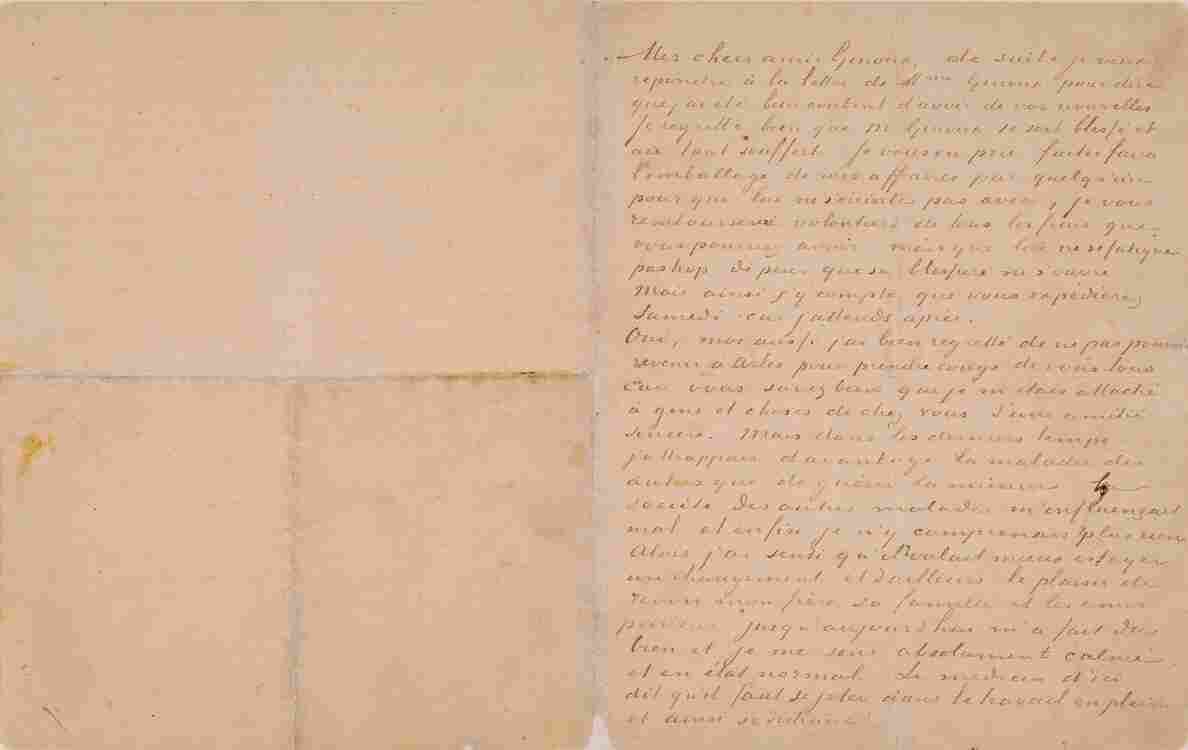 Mes chers amis Ginoux, de suite je veux
repondre à la lettre de Mme Ginoux pour dire
que j'ai été bien content d'avoir de vos nouvelles
Je regrette bien que M Ginoux se soit blessé et
ait tant souffert. Je vous en prie faites faire
l'emballage de mes affaires par quelqu'un
pour que lui ne s'éreinte pas avec, je vous
rembourserai volontiers de tous les frais que
vous pourriez avoir mais que lui ne se fatigue
pas trop de peur que sa blessure ne s'ouvre
Mais ainsi j'y compte que vous expedierez
Samedi car j'attends après.
Oui, moi aussi j'ai bien regretté de ne pas pouvoir
revenir à Arles pour prendre congé de vous tous
car vous savez bien que je m'étais attaché
à gens et choses de chez vous d'une amitié
sincère. Mais dans les derniers temps
j'attrappais davantage la maladie des
autres que de guérir la mienne la
société des autres malades m'influençait
mal et enfin je n'y comprenais plus rien
Alors j'ai senti qu'il valait mieux essayer
un changement et d'ailleurs le plaisir de
revoir mon frère sa famille et les amis
jusqu'aujourd'hui m'a fait du
bien et je me sens absolument calme
et en état normal. Le medecin d'ici
dit qu'il faut se jeter dans le travail en plein
et ainsi se